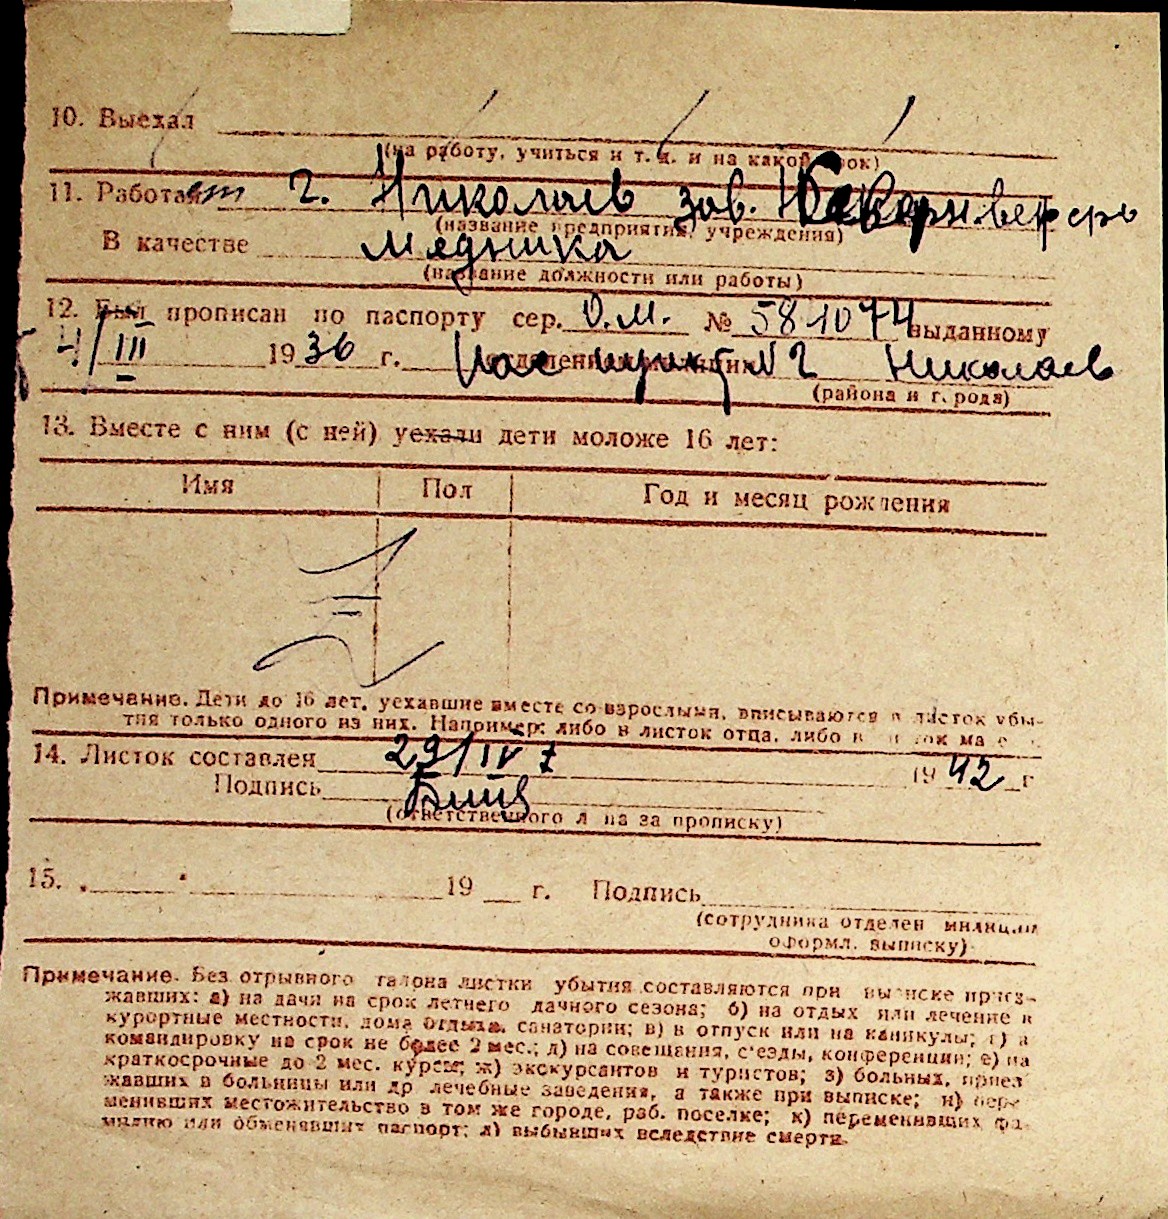 10. Выехал
(на работу, учиться и т. д. и на какой срок)
11. Работает г. Николаев зав. верфь
(название предприятия, учреждения)
В качестве медника
(название должности или работы)
12. Был прописан по паспорту сер. О.М. № 581074 выданному
4/III 1936 г. Пас пункт N 2 Николаев
(района и города)
13. Вместе с ним (с ней) уехали дети моложе 16 лет:
Имя Пол Год и месяц рождения
Примечание. Дети до 16 лет, уехавшие вместе со взрослыми, вписываются в листок убы-
тия только одного из них. Например: либо в листок отца, либо в
14. Листок составлен 29/IV 1942 г
Подпись
(ответственного лица за прописку)
15. 19 г. Подпись
(сотрудника отделен милиции
оформл. выписку)
Примечание. Без отрывного талона листки убытия составляются при выписке приез-
жавших: а) на дачи на срок летнего дачного сезона; б) на отдых или лечение в
курортные местности, дома отдыха, санатории; в) в отпуск или на каникулы; г) в
командировку на срок не более 2 мес.; д) на совещания, с'езды, конференции; е) на
краткосрочные до 2 мес. курсы; ж) экскурсантов и туристов; з) больных, приез
жавших в больницы или др лечебные заведения, а также при выписке; и) пере-
менивших местожительство в том же городе, раб. поселке; к) переменивших фа-
милию или обменявших паспорт; л) выбывших вследствие смерти.